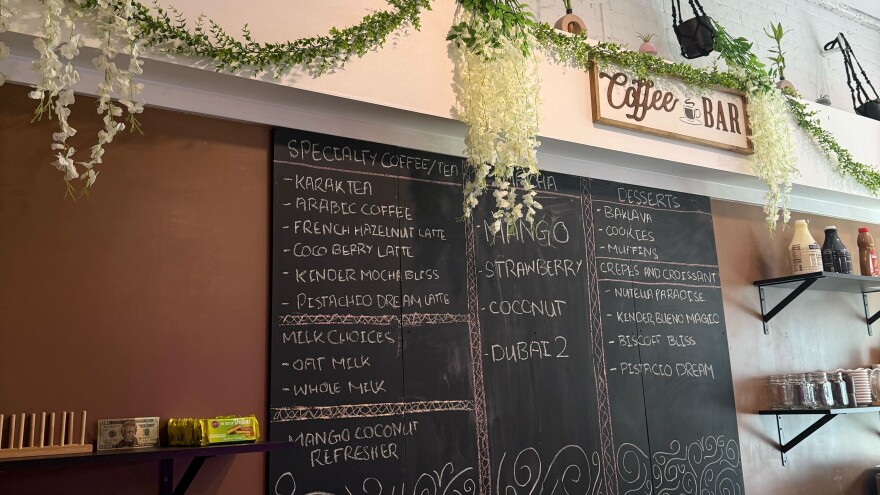 Coffee BAR
SPECIALTY COFFEE/TEA
- KARAK TEA
- ARABIC COFFEE
- FRENCH HAZELNUT LATTE
COCO BERRY LATTE
- KINDER MOCHA BLISS
- PISTACHIO DREAM LATTE
MILK CHOICES
- OAT MILK
- WHOLE MILK
MANGO COCONUT
REFRESHER
MANGO
- STRAWBERRY
- COCONUT
- DUBAI 2
DESSERTS
- BAKLAVA
- COOKIES
- MUFFINS
CREPES AND CROISSANT
- NUTELLA PARADISE
- KINDER BUENO MAGIC
- BISCOFF BLISS
- PISTACIO DREAM